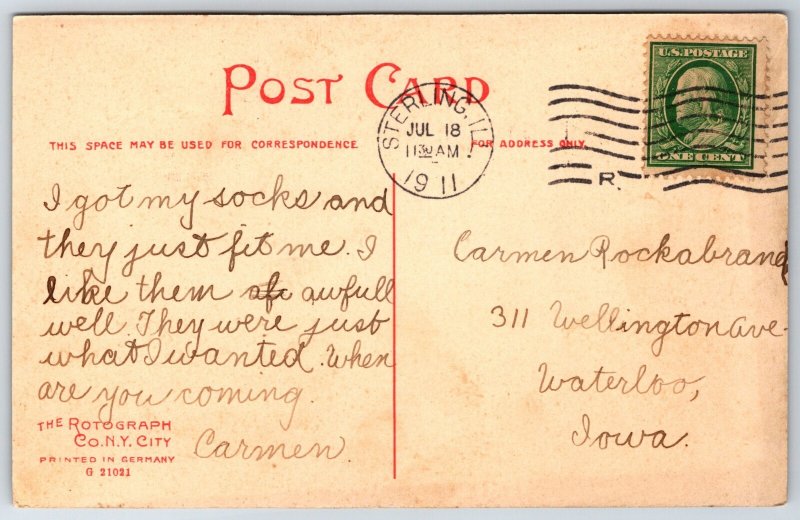 POST CARD
U.S. POSTAGE
ONE CENT
STERLING, ILL.
JUL 18
11 30 AM
1911
R.
THIS SPACE MAY BE USED FOR CORRESPONDENCE
FOR ADDRESS ONLY
I got my socks and
they just fit me. I
like them awfull
well. They were just
what I wanted. When
are you coming.
Carmen.
Carmen Rockabrand
311 Wellington Ave.
Waterloo,
Iowa.
THE ROTOGRAPH
CO. N.Y. CITY
PRINTED IN GERMANY
G 21021